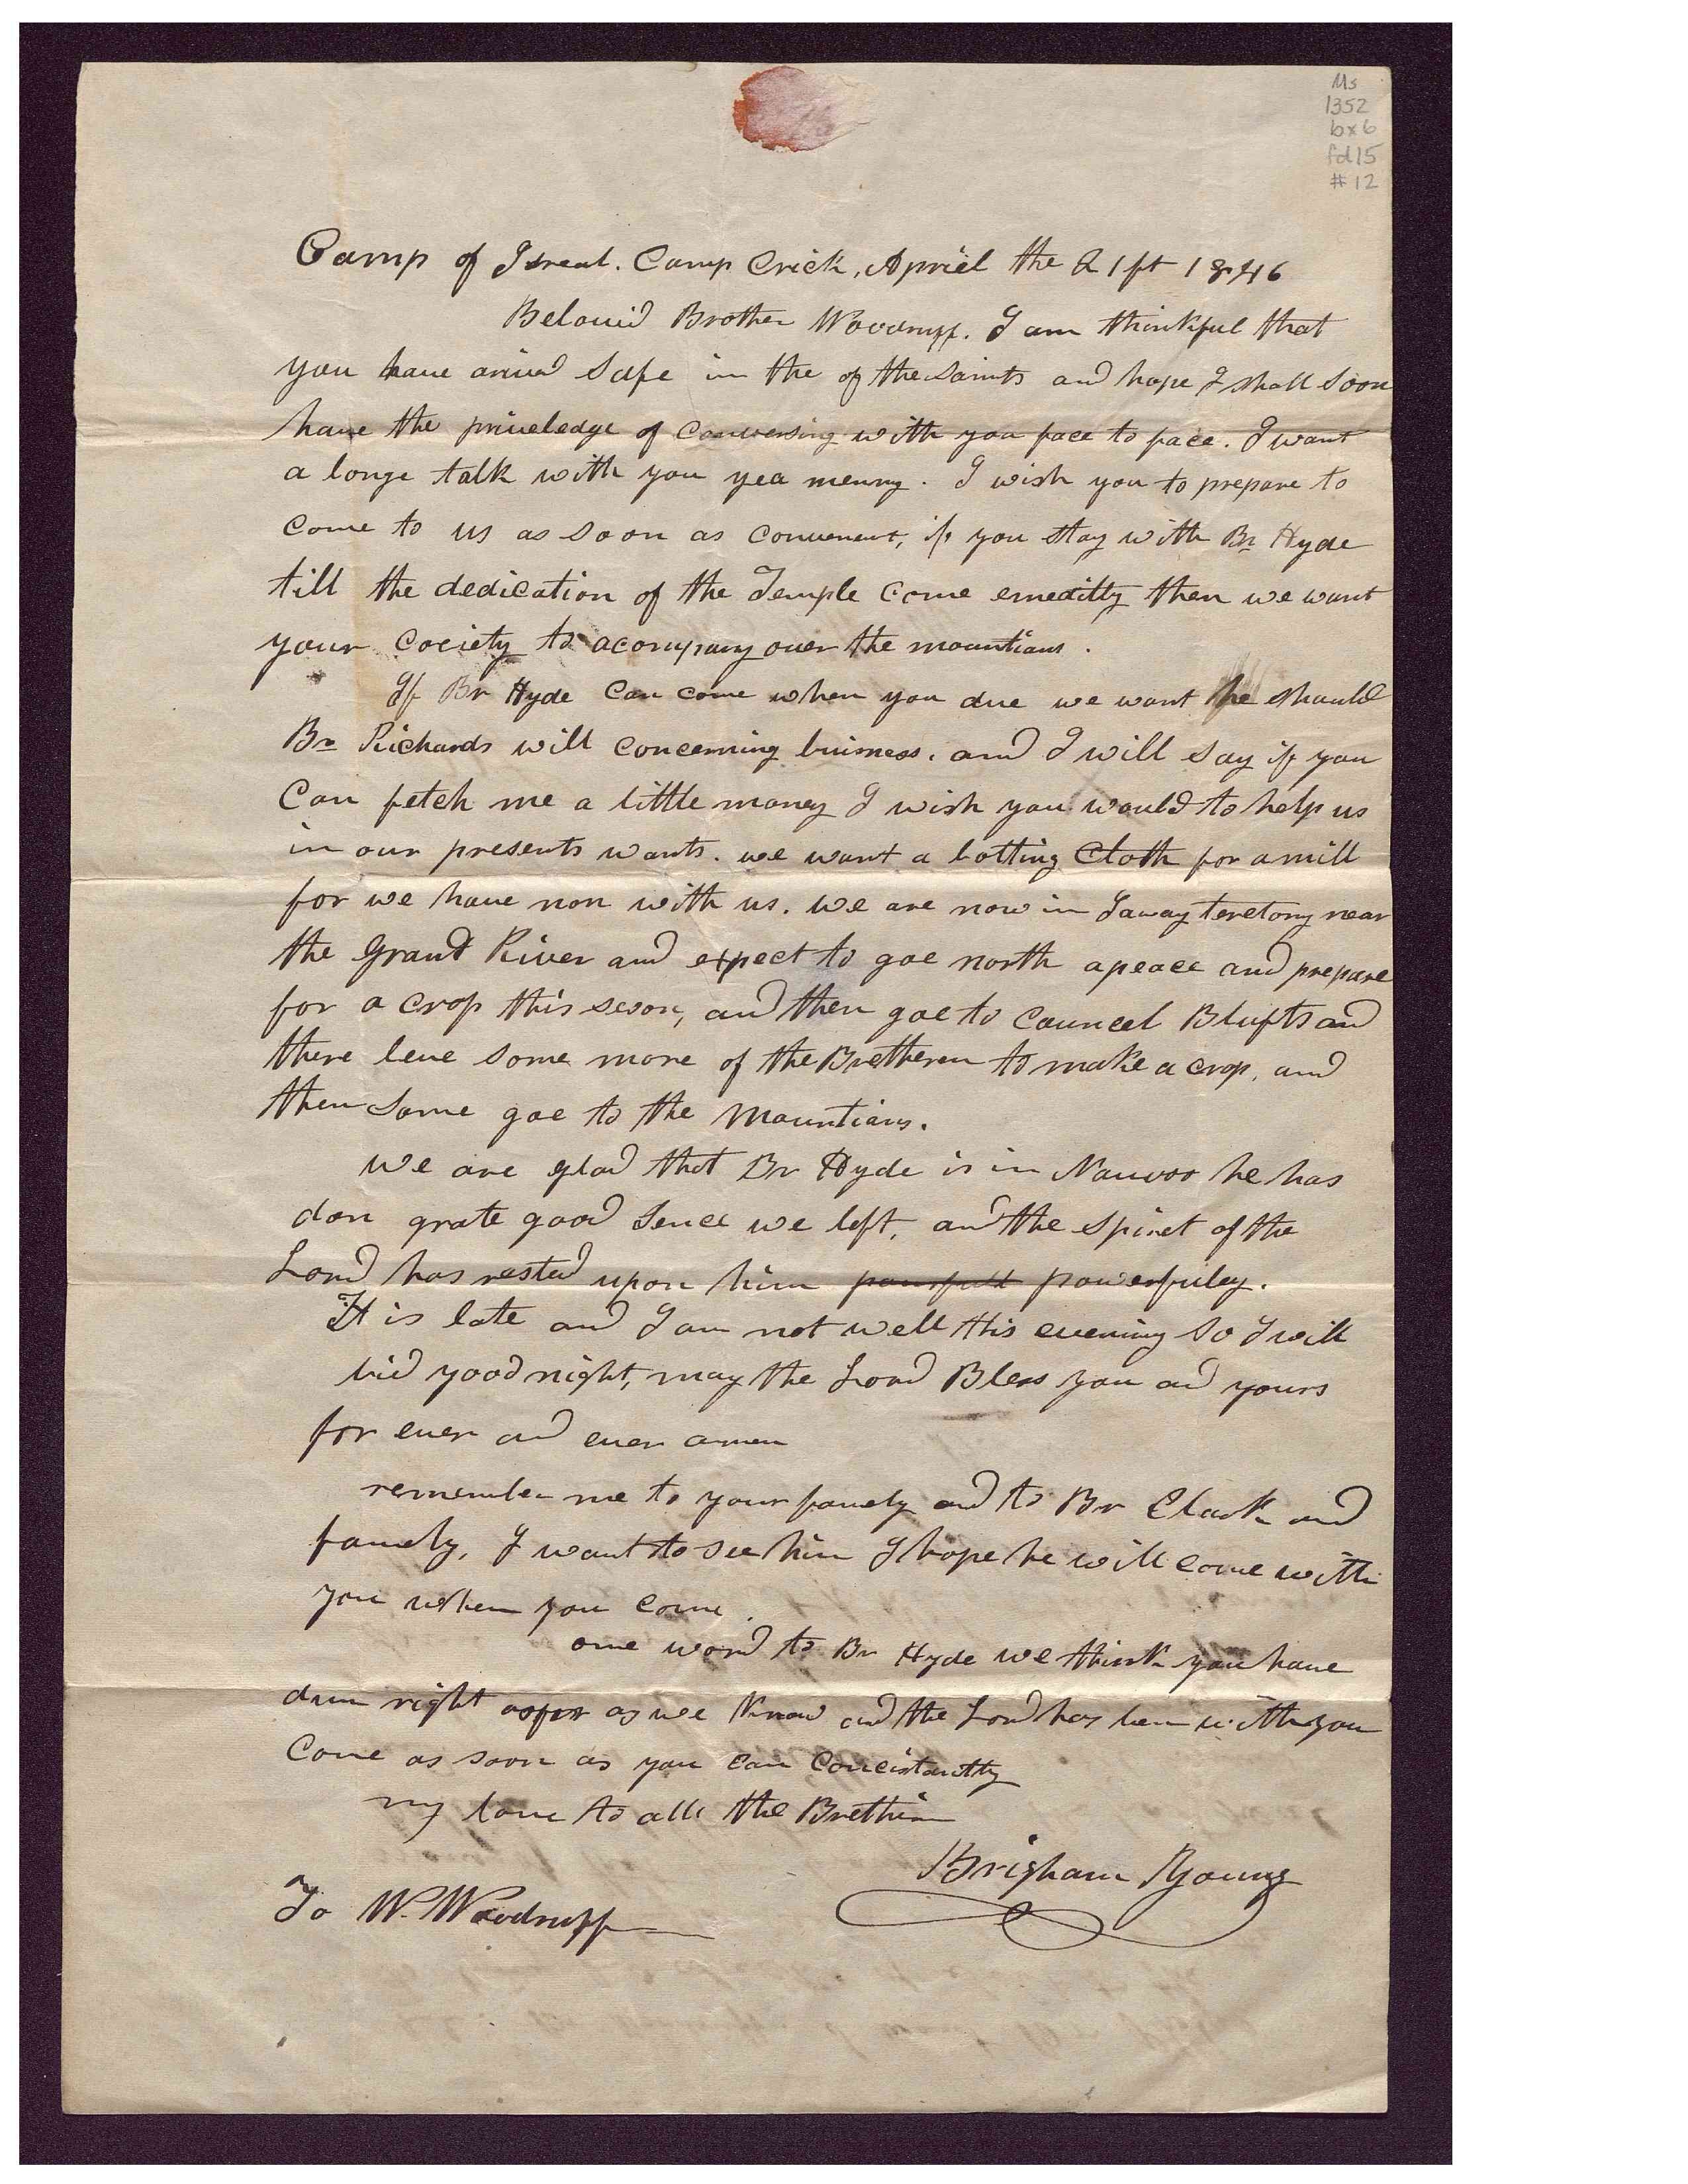 Ms
1352
bx6
fd15
#12
Camp of Isreal. Camp Crick, Apriel the 21st 1846
Belovid Brother Woodruff. I am thinkful that
you have arived safe in the of the Saints and hope I shall soon
have the priveledge of conversing with you face to face. I want
a longe talk with you yea menny. I wish you to prepare to
come to us as soon as convenent, if you stay with Br Hyde
till the dedication of the Temple come emeditly then we want
your cociety to acompany over the mountians.
If Br Hyde can come when you due we want he should
Br Richards will concerning buisness. and I will say if you
can fetch me a little money I wish you would to help us
in our presents wants. we want a bolting cloth for a mill
for we have non with us. we are now in Iaway teretory near
the Grand River and expect to goe north apeace and prepare
for a crop this seson, and then goe to Councel Blufts and
there leve some more of the Bretheren to make a crop, and
then some goe to the Mountians.
we are glad that Br Hyde is in Nauvoo he has
don grate good sence we left, and the spiret of the
Lord has rested upon him powerfuley.
It is late and I am not well this evening so I will
bid good night, may the Lord Bless you and yours
for ever and ever amen
remember me to your famely and to Br Clark and
famely, I want to see him I hope he will come with
you when you come.
one word to Br Hyde we think you have
dun right as we know and the Lord has ben with you
Come as soon as you can concistantly
my love to all the Brethin
Brigham Young
To W. Woodruff